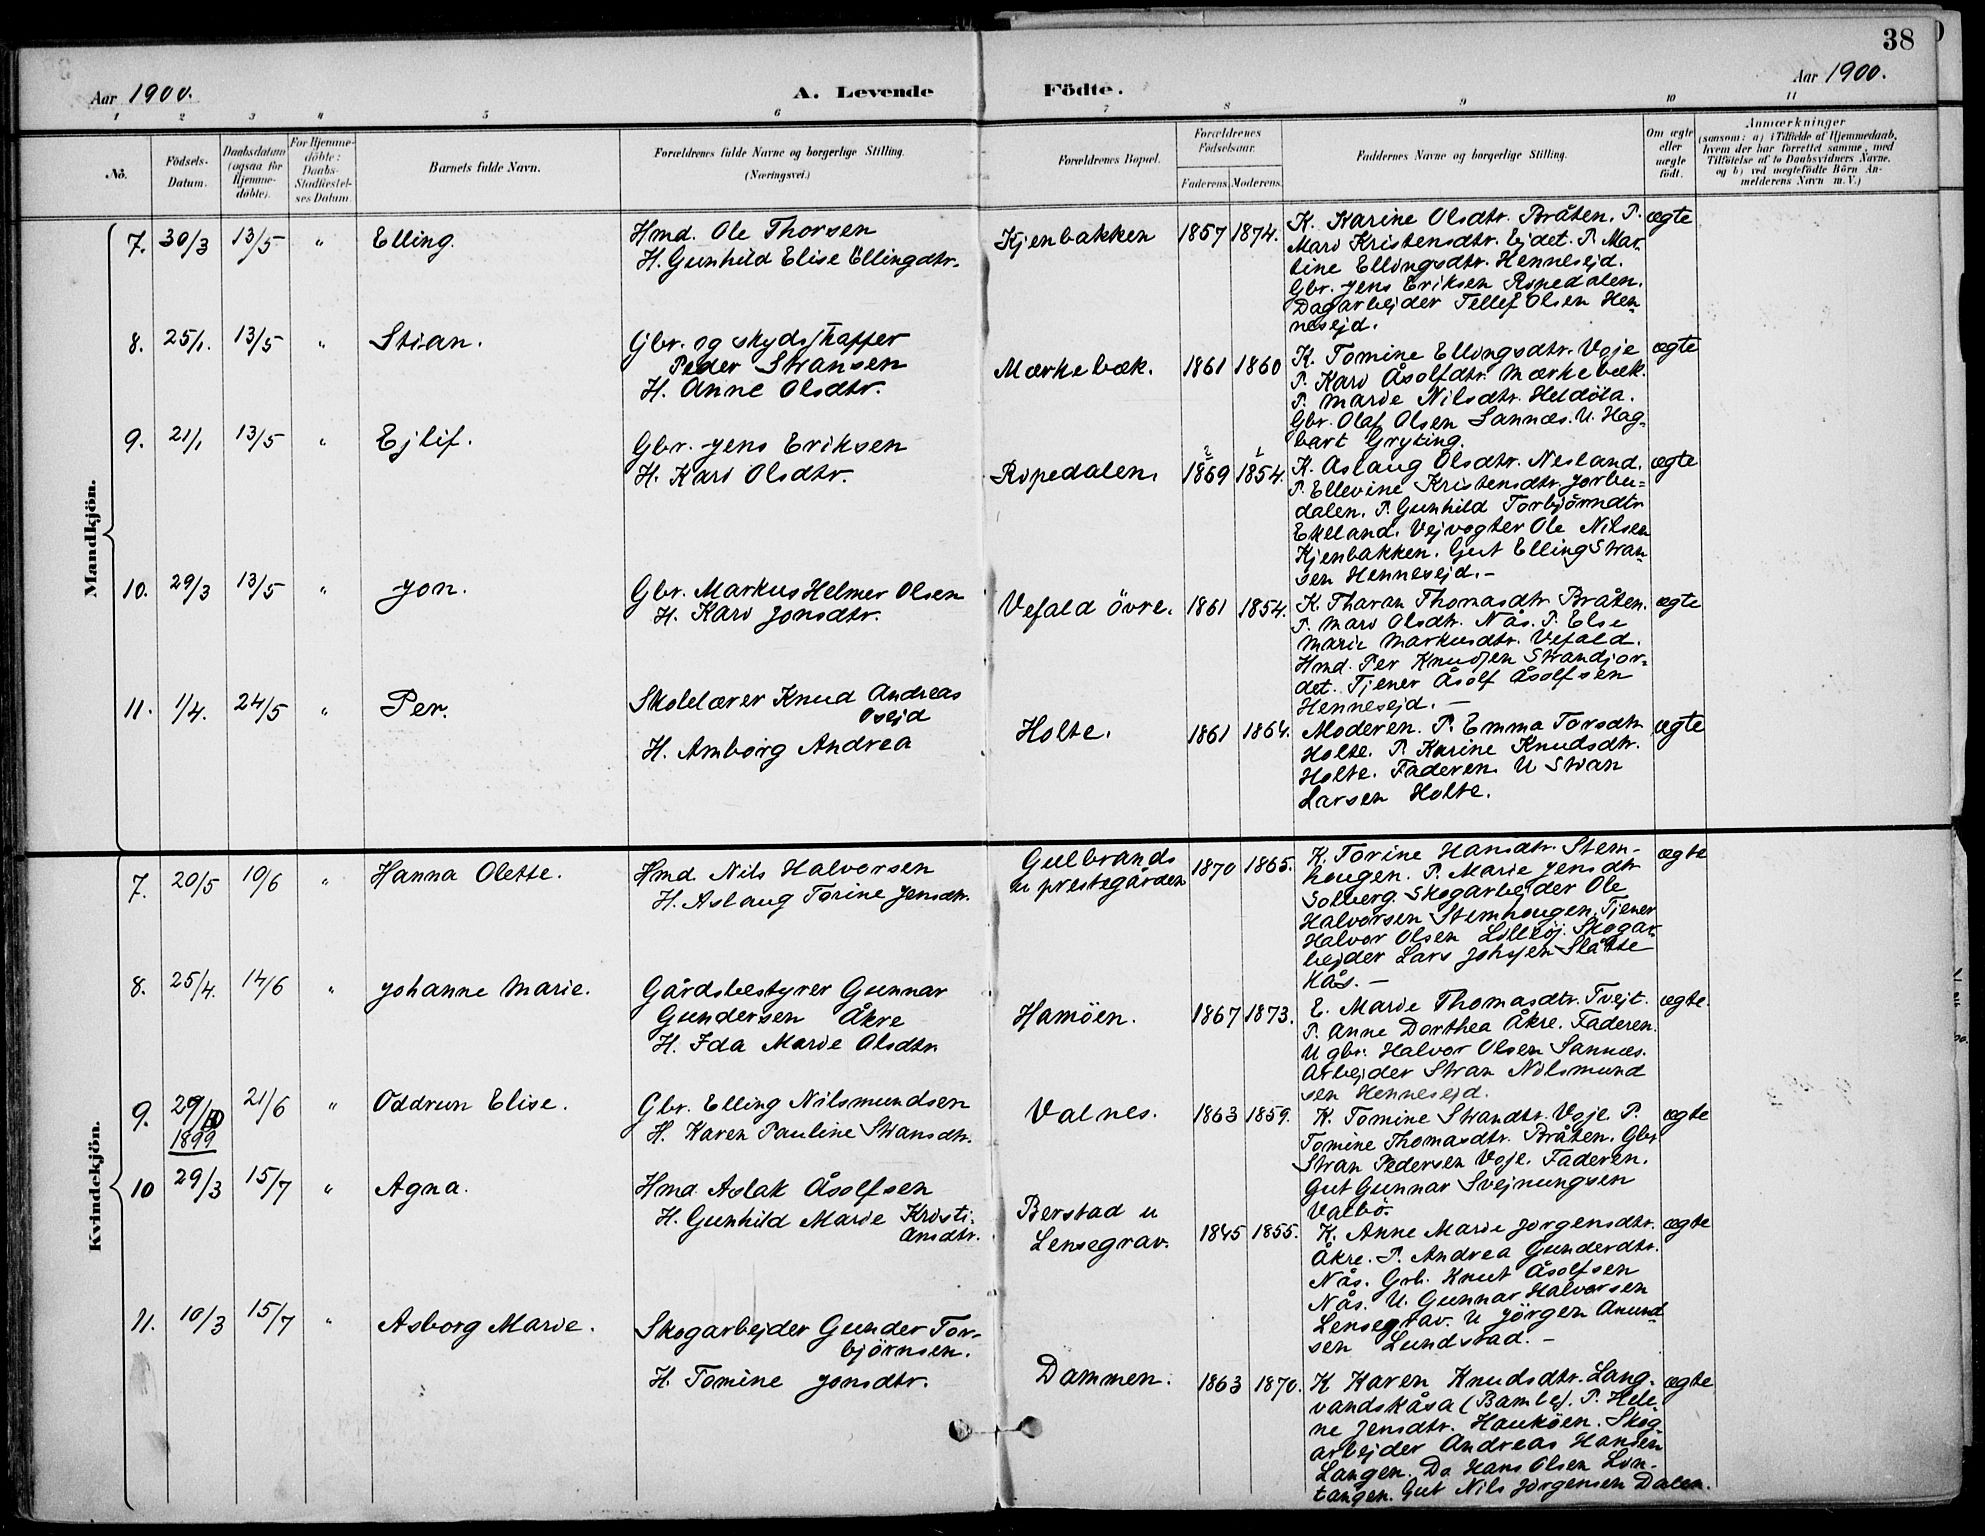 38
Aar 1900.
A. Levende Födte.
Aar 1900.
1 2 3 4 5 6 7 8 9 10 11
No.
Födsels-
Datum.
Daabsdatum
(ogsaa for
Hjemme-
döbte).
For Hjemme-
döbte:
Daabs-
Stadfæstel-
ses Datum
Barnets fulde Navn.
Forældrenes fulde Navne og borgerlige Stilling.
(Næringsvei.)
Forældrenes Bopæl.
Forældrenes
Födselsaar.
Faderens Moderens
Faddernes Navne og borgerlige Stilling.
Om ægte
eller
uægte
född.
Anmærkninger
(saasom: a) i Tilfælde af Hjemmedaab,
hvem der har forrettet samme, med
Tilföielse af to Daabsvidners Navne,
og b) ved uægtefödte Börn An-
melderens Navn m. V.)
Mandkjön.
7. 30/3 13/5 " Elling.
Hmd. Ole Thorsen
H. Gunhild Elise Ellingdtr.
Kjenbakken 1857 1874.
K. Karine Olsdtr. Bråten. P.
Mari Kristensdtr. Ejdet. P. Mar-
tine Ellingsdtr. Hennesejd.
Gbr. Jens Eriksen Ripedalen.
Dagarbejder Tellef Olsen Hen-
nesejd.
ægte
8. 25/1. 13/5 " Stian.
Gbr. og skydsskaffer
Peder Stiansen
H. Anne Olsdtr.
Mærkebæk. 1861 1860
K. Tomine Ellingsdtr. Voje
P. Kari Åsolfdtr. Mærkebæk.
P. Marie Nilsdtr. Heldöla.
Gbr. Olaf Olsen Sannæs. U. Hag-
bart Gryting.
ægte
9. 21/1 13/5 " Ejlif.
Gbr. Jens Eriksen
H. Kari Olsdtr.
Ripedalen. 1869 1854.
K. Aslaug Olsdtr. Nesland.
P. Ellevine Kristensdtr. Jorbu-
dalen. P. Gunhild Torbjörndtr
Ekeland. Vejvogter Ole Nilsen
Kjenbakken. Gut Elling Stian-
sen Hennesejd.-
ægte
10. 29/3 13/5 " Jon.
Gbr. Markus Helmer Olsen
H. Kari Jonsdtr.
Vefald övre. 1861 1854.
K. Tharan Thomasdtr Bråten.
P. Mari Olsdtr. Nås. P. Else
Marie Markusdtr. Vefald.
Hmd. Per Knudsen Strandjor-
det. Tjener Åsolf Åsolfsen
Hennesejd. -
ægte
11. 1/4. 24/5 " Per.
Skolelærer Knud Andreas
Osejd
H. Amborg Andrea
Holte. 1861 1864.
Moderen. P. Emma Torsdtr
Holte. P. Karine Knudsdtr.
Holte. Faderen. U Stian
Larsen Holte.
ægte
Kvindekjön.
7. 20/5 10/6 " Hanna Olette.
Hmd. Nils Halvorsen
H. Aslaug Torine Jensdtr.
Gulbrands
u prestegården 1870 1865.
K. Torine Hansdtr. Stem-
hougen. P. Marie Jensdtr
Solberg. Skogarbejder Ole
Halvorsen Stemhougen. Tjener
Halvor Olsen Lilleöj. Skogar-
bejder Lars Johsen Slåtte
Kås. -
ægte
8. 25/4. 14/6 " Johanne Marie.
Gårdsbestyrer Gunnar
Gundersen Åkre
H. Ida Marie Olsdtr.
Hamöen. 1867 1873.
E. Marie Thomasdtr. Tvejt.
P. Anne Dorthea Åkre. Faderen.
U gbr. Halvor Olsen Sannæs.
Arbejder Stian Nilsmund
sen Hennesejd.
ægte.
9. 29/10 21/6 " Oddrun Elise.
1899
Gbr. Elling Nilsmundsen
H. Karen Pauline Stiansdtr.
Valnes. 1863 1859.
K. Tomine Stiandtr. Voje P.
Tomine Thomasdtr. Bråten. Gbr
Stian Pedersen Voje. Faderen.
Gut Gunnar Svejnungsen
Valbö.
ægte
10 29/3 15/7 " Agna.
Hmd. Aslak Åsolfsen
H. Gunhild Marie Kristi-
ansdtr.
Berstad u
Lensegrav. 1845 1855.
K. Anne Marie Jörgensdtr.
Åkre. P. Andrea Gunderdtr.
Nås. Grb. Knut Åsolfsen
Nås. U. Gunnar Halvorsen
Lensegrav. U Jörgen Anund-
sen Lundstad. -
ægte
11. 10/3 15/7 " Asborg Marie.
Skogarbejder Gunder Tor-
björnsen.
H. Tomine Jonsdtr.
Dammen. 1863 1870.
K Karen Knudsdtr. Lang-
vandskåsa (Bamble). P. Hele-
ne Jensdtr. Hauköen. Skog-
arbejder Andreas Hansen
Langen. Do Hans Olsen Lin-
tangen. Gut Nils Jörgensen Dalen.
ægte